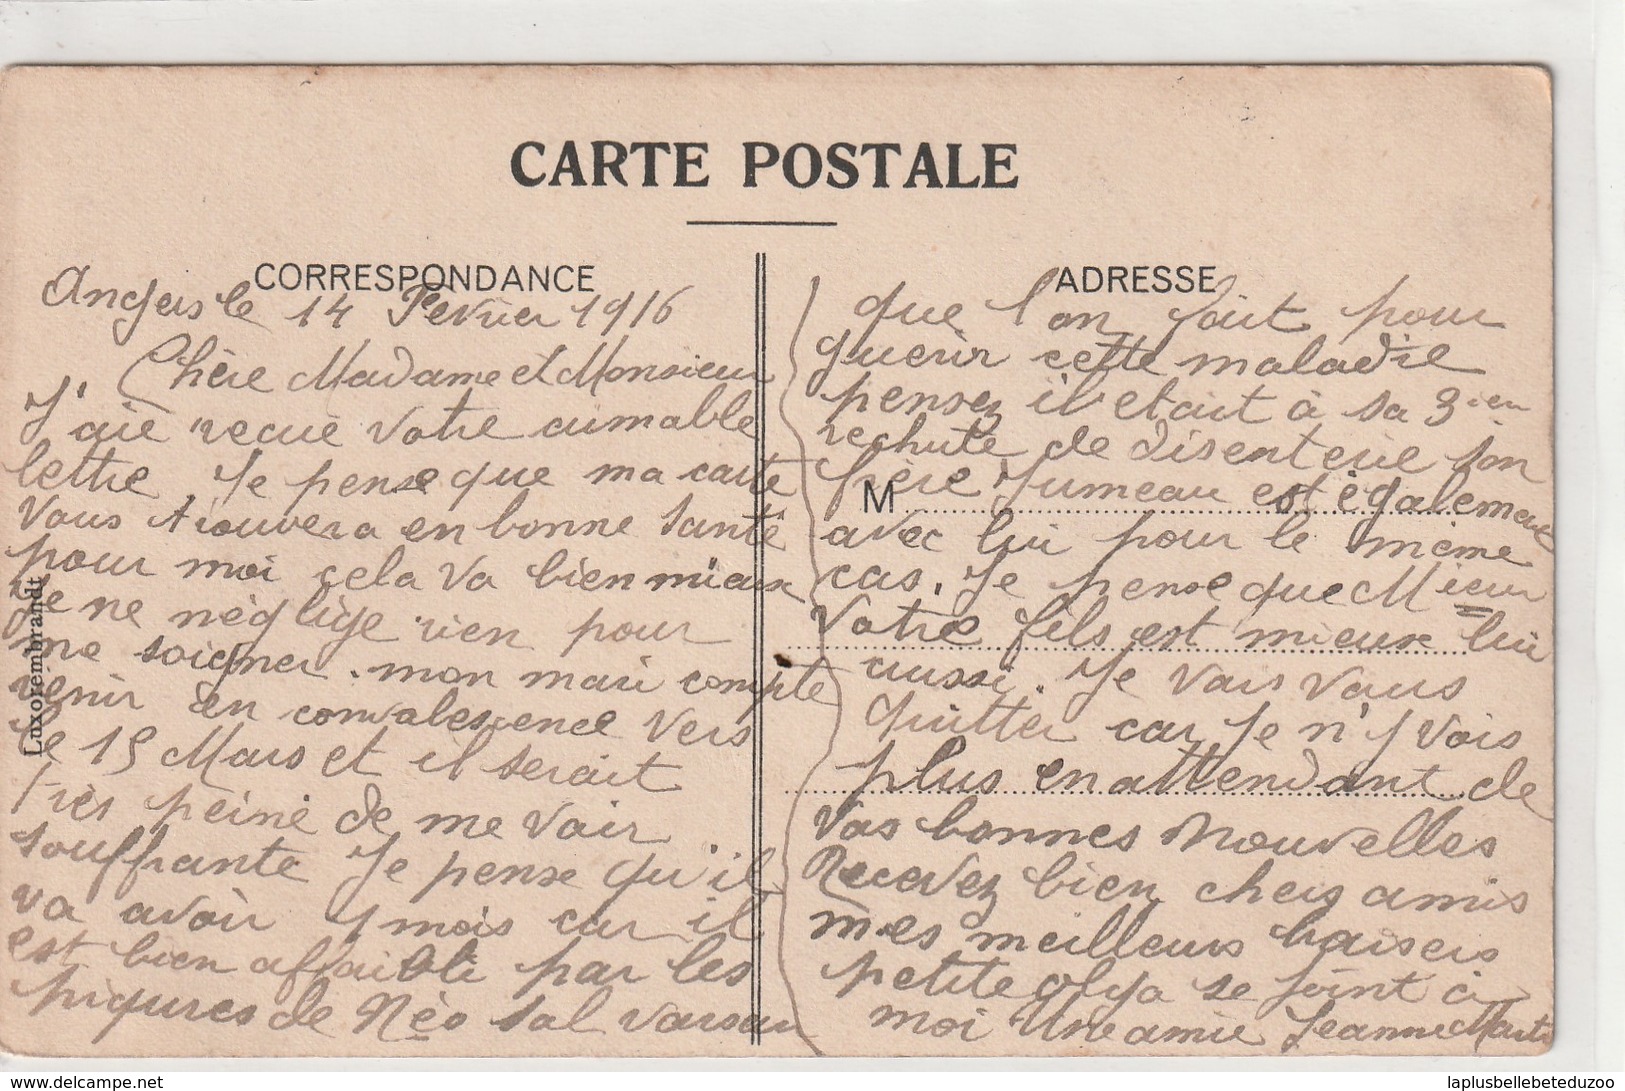 CARTE POSTALE
CORRESPONDANCE
Angers le 14 Fevrier 1916
Chère Madame et Monsieur
J'aie recue votre aimable
lettre. Je pense que ma carte
vous trouvera en bonne santé
pour moi cela va bien mieux
Je ne néglige rien pour
me soigner. mon mari compte
venir en convalescence vers
le 15 Mars et il serait
très peiné de me voir
souffrante Je pense qu'il
va avoir 1 mois car il
est bien affaibli par les
piqures de Néo Sal varsan
Luxorembrandt
ADRESSE
que l'on fait pour
guerir cette maladie
pensez il etait à sa 3ien
rechute de disenterie son
frère Jumeau est également
M
avec lui pour le même
cas. Je pense que Mieur
Votre fils est mieux lui
aussi. Je vais vous
quitter car Je n'y vois
plus en attendant de
vos bonnes nouvelles
Recevez bien chers amis
mes meilleurs baisers
petite Olga se joint à
moi Une amie Jeanne
laplusbellebeteduzoo